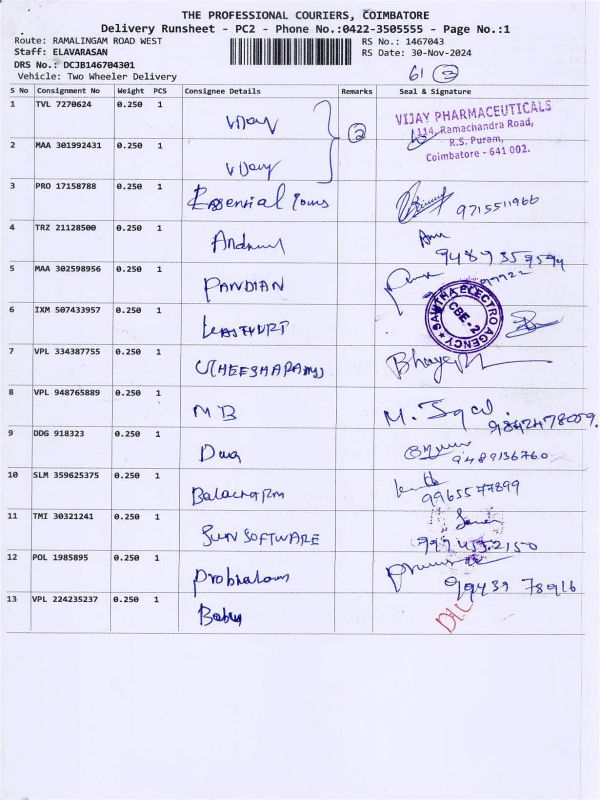 THE PROFESSIONAL COURIERS, COIMBATORE
Delivery Runsheet - PC2 - Phone No.:0422-3505555 - Page No.:1
Route: RAMALINGAM ROAD WEST RS No.: 1467043
Staff: ELAVARASAN RS Date: 30-Nov-2024
DRS No.: DCJB146704301
Vehicle: Two Wheeler Delivery
S No Consignment No Weight PCS Consignee Details Remarks Seal & Signature
1 TVL 7270624 0.250 1 Vijay
VIJAY PHARMACEUTICALS
114, Ramachandra Road,
R.S. Puram,
Coimbatore - 641 002.
2
2 MAA 301992431 0.250 1 Vijay
3 PRO 17158788 0.250 1 Essential Tours 9715511966
4 TRZ 21128500 0.250 1 9489359594
5 MAA 302598956 0.250 1 PANDIAN
6 IXM 507433957 0.250 1
SAWTHA ELECTRO AGENCY
CBE-2
7 VPL 334387755 0.250 1
8 VPL 948765889 0.250 1 MB 9842478059.
9 DDG 918323 0.250 1 9489136760
10 SLM 359625375 0.250 1 9965577899
11 TMI 30321241 0.250 1 SUN SOFTWARE
12 POL 1985895 0.250 1 99439 78916
13 VPL 224235237 0.250 1 Babu